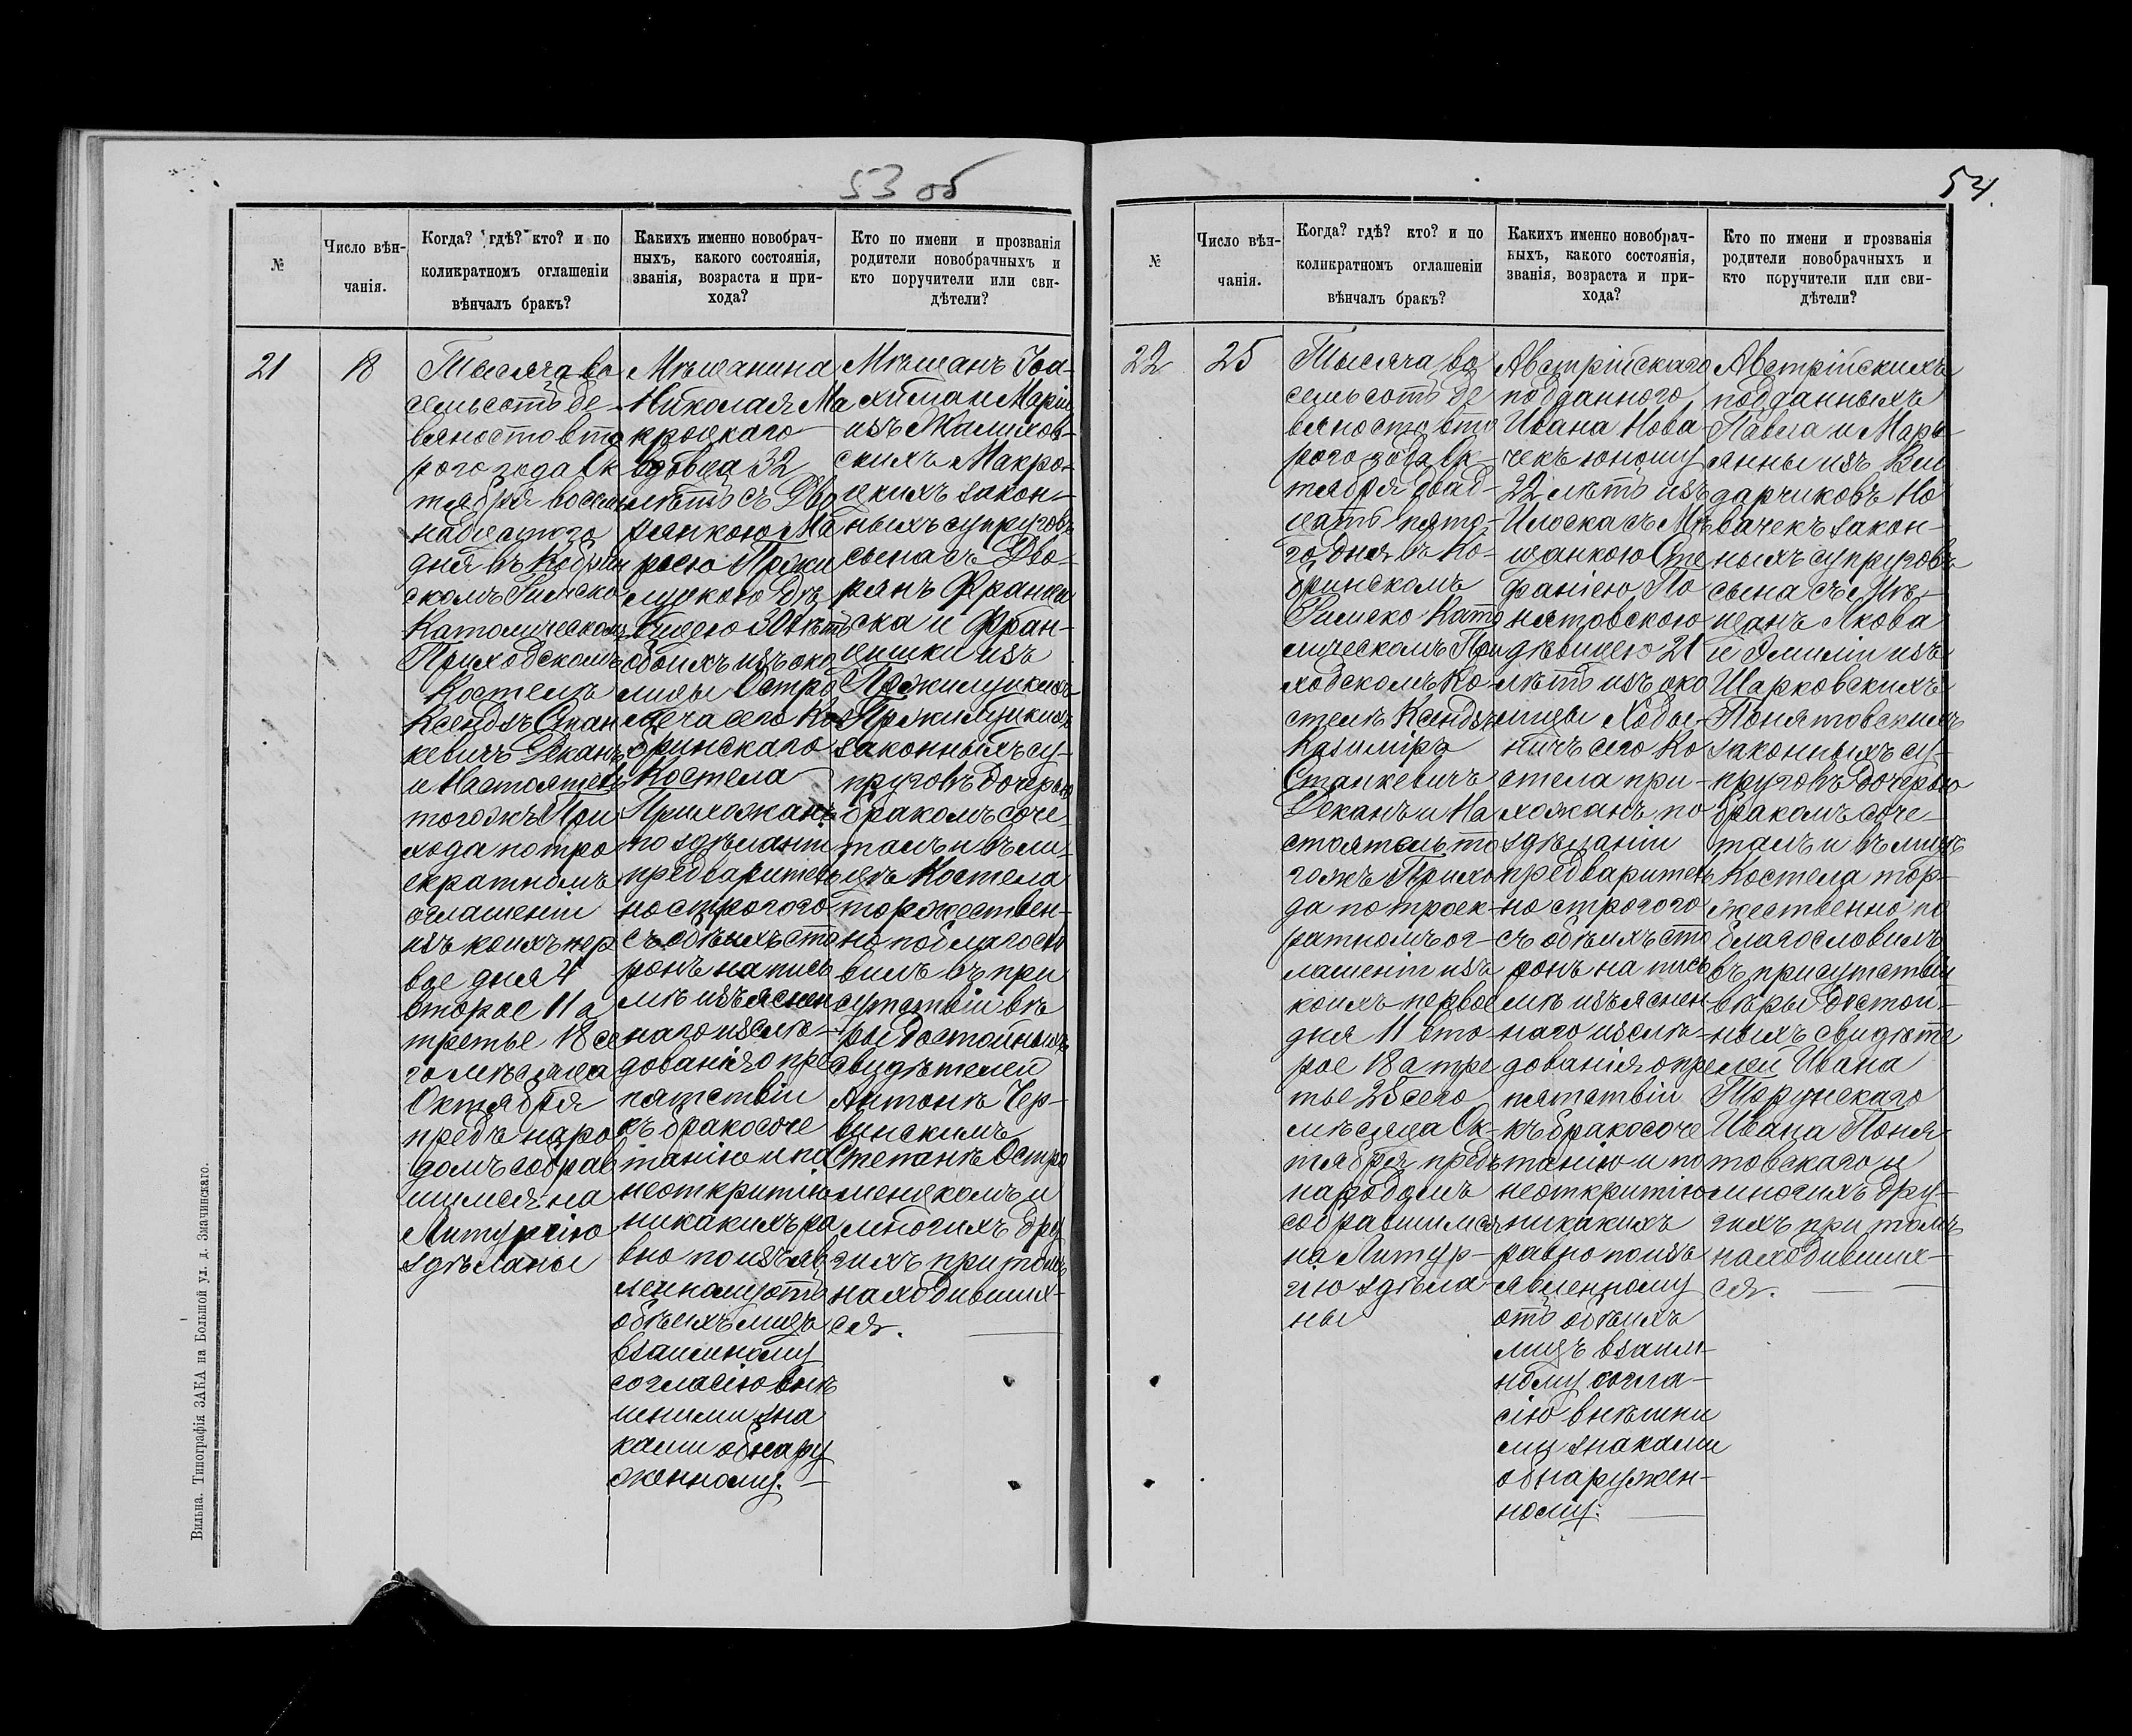 53 об
№
Число вѣн-
чанія.
Когда? гдѣ? кто? и по
коликратномъ оглашеніи
вѣнчалъ бракъ?
Какихъ именно новобрач-
ныхъ, какого состоянія,
званія, возраста и при-
хода?
Кто по имени и прозванія
родители новобрачныхъ и
кто поручители или сви-
дѣтели?
21
18
Тысяча во
семьсотъ де-
вяносто вто
рого года Ок
тября восем
надцатого
дня въ Кобрин
скомъ Римско
Католическомъ
Приходскомъ
Костелѣ
Ксендзъ Стан
кевичъ Деканъ
и Настоятель
тогожъ При
хода по тро
екратномъ
оглашеніи
изъ коихъ пер
вое дня 4
второе 11 а
третье 18 се
го мѣсяца
Октября
предъ наро
домъ собрав
шимся на
Литургію
здѣланы
Мѣщанина
Николая Ма
кроцкаго
вдовца 32
лѣтъ съ Дво
рянкою Ма
рѣвицею 30 лѣтъ
обоихъ изъ око
лицы Остро
меча сего Ко
бринскаго
Костела
Прихожанъ
по здѣланіи
предваритель
но строгого
съ обѣихъ сто
ронъ на пись
мѣ изъяснен
наго изслѣ-
дованія о пре
пятствіи
къ бракосоче
танію и по
неоткрытію
никакихъ ра
вно по изъяв
ленному отъ
обѣихъ лицъ
взаимному
согласію внѣ
шними зна
ками обнару
женному.
Мѣщанъ Іоа-
хима и Маріи
изъ
Макро-
цкихъ закон-
ныхъ супруговъ
сына съ Дво-
рянъ Францы
ска и Фран-
цишки изъ
законныхъ су-
пруговъ дочерью
бракомъ соче-
талъ и въ ли-
цѣ Костела
торжествен-
но поблагосло
вилъ въ при
сутствіи вѣ
ры достойныхъ
свидѣтелей
Антонѣ Чер-
винскимъ
Степанѣ Остро
и
многихъ дру
гихъ при томъ
находивших-
ся.
Вильна. Типографія ЗАКА на Большой ул. д. Змачинскаго.
54.
№
Число вѣн-
чанія.
Когда? гдѣ? кто? и по
коликратномъ оглашеніи
вѣнчалъ бракъ?
Какихъ именно новобрач-
ныхъ, какого состоянія,
званія, возраста и при-
хода?
Кто по имени и прозванія
родители новобрачныхъ и
кто поручители или сви-
дѣтели?
22
25
Тысяча во
семьсотъ де
вяносто вто
рого года Ок-
тября двад-
цать пято-
го дня въ Ко-
бринскомъ
Римско Като
лическомъ При
ходскомъ Ко-
стелѣ Ксендзъ
Казиміръ
Станкевичъ
Деканъ и На
стоятель то
гожъ Прихо
да по троек-
ратномъ ог-
лашеніи изъ
коихъ первое
дня 11 вто-
рое 18 а тре
тье 25 сего
мѣсяца Ок-
тября предъ
народомъ
собравшимся
на Литур-
гію здѣла
ны
Австрійскаго
подданного
Ивана Нова-
чекъ юношу
22 лѣтъ изъ
Илоска съ Мѣ
щанкою Сте
фаніею По
нятовскою
дѣвицею 21
лѣтъ изъ око
лицы Ходы-
ничъ сего Ко
стела при-
хожанъ по
здѣланіи
предваритель
но строгого
съ обѣихъ сто
ронъ на пись
мѣ изъяснен
наго изслѣ-
дованія о пре
пятствіи
къ бракосоче
танію и по
неоткрытію
никакихъ
равно по изъ
явленному
отъ обѣихъ
лицъ взаим-
ному согла-
сію внѣшни
ми знаками
обнаружен-
ному.
Австрійскихъ
подданныхъ
Павла и Марь-
янны изъ
Но
вачекъ закон-
ныхъ супруговъ
сына съ Мѣ-
щанъ Якова
и Эмиліи изъ
Шарковскихъ
Понятовскихъ
законныхъ су-
пруговъ дочерью
бракомъ соче-
талъ и въ лицѣ
Костела тор-
жественно по
благословилъ
въ присутствіи
вѣры достой-
ныхъ свидѣте
лей Ивана
Ивана Поня-
товскаго и
многихъ дру-
гихъ при томъ
находивших-
ся.